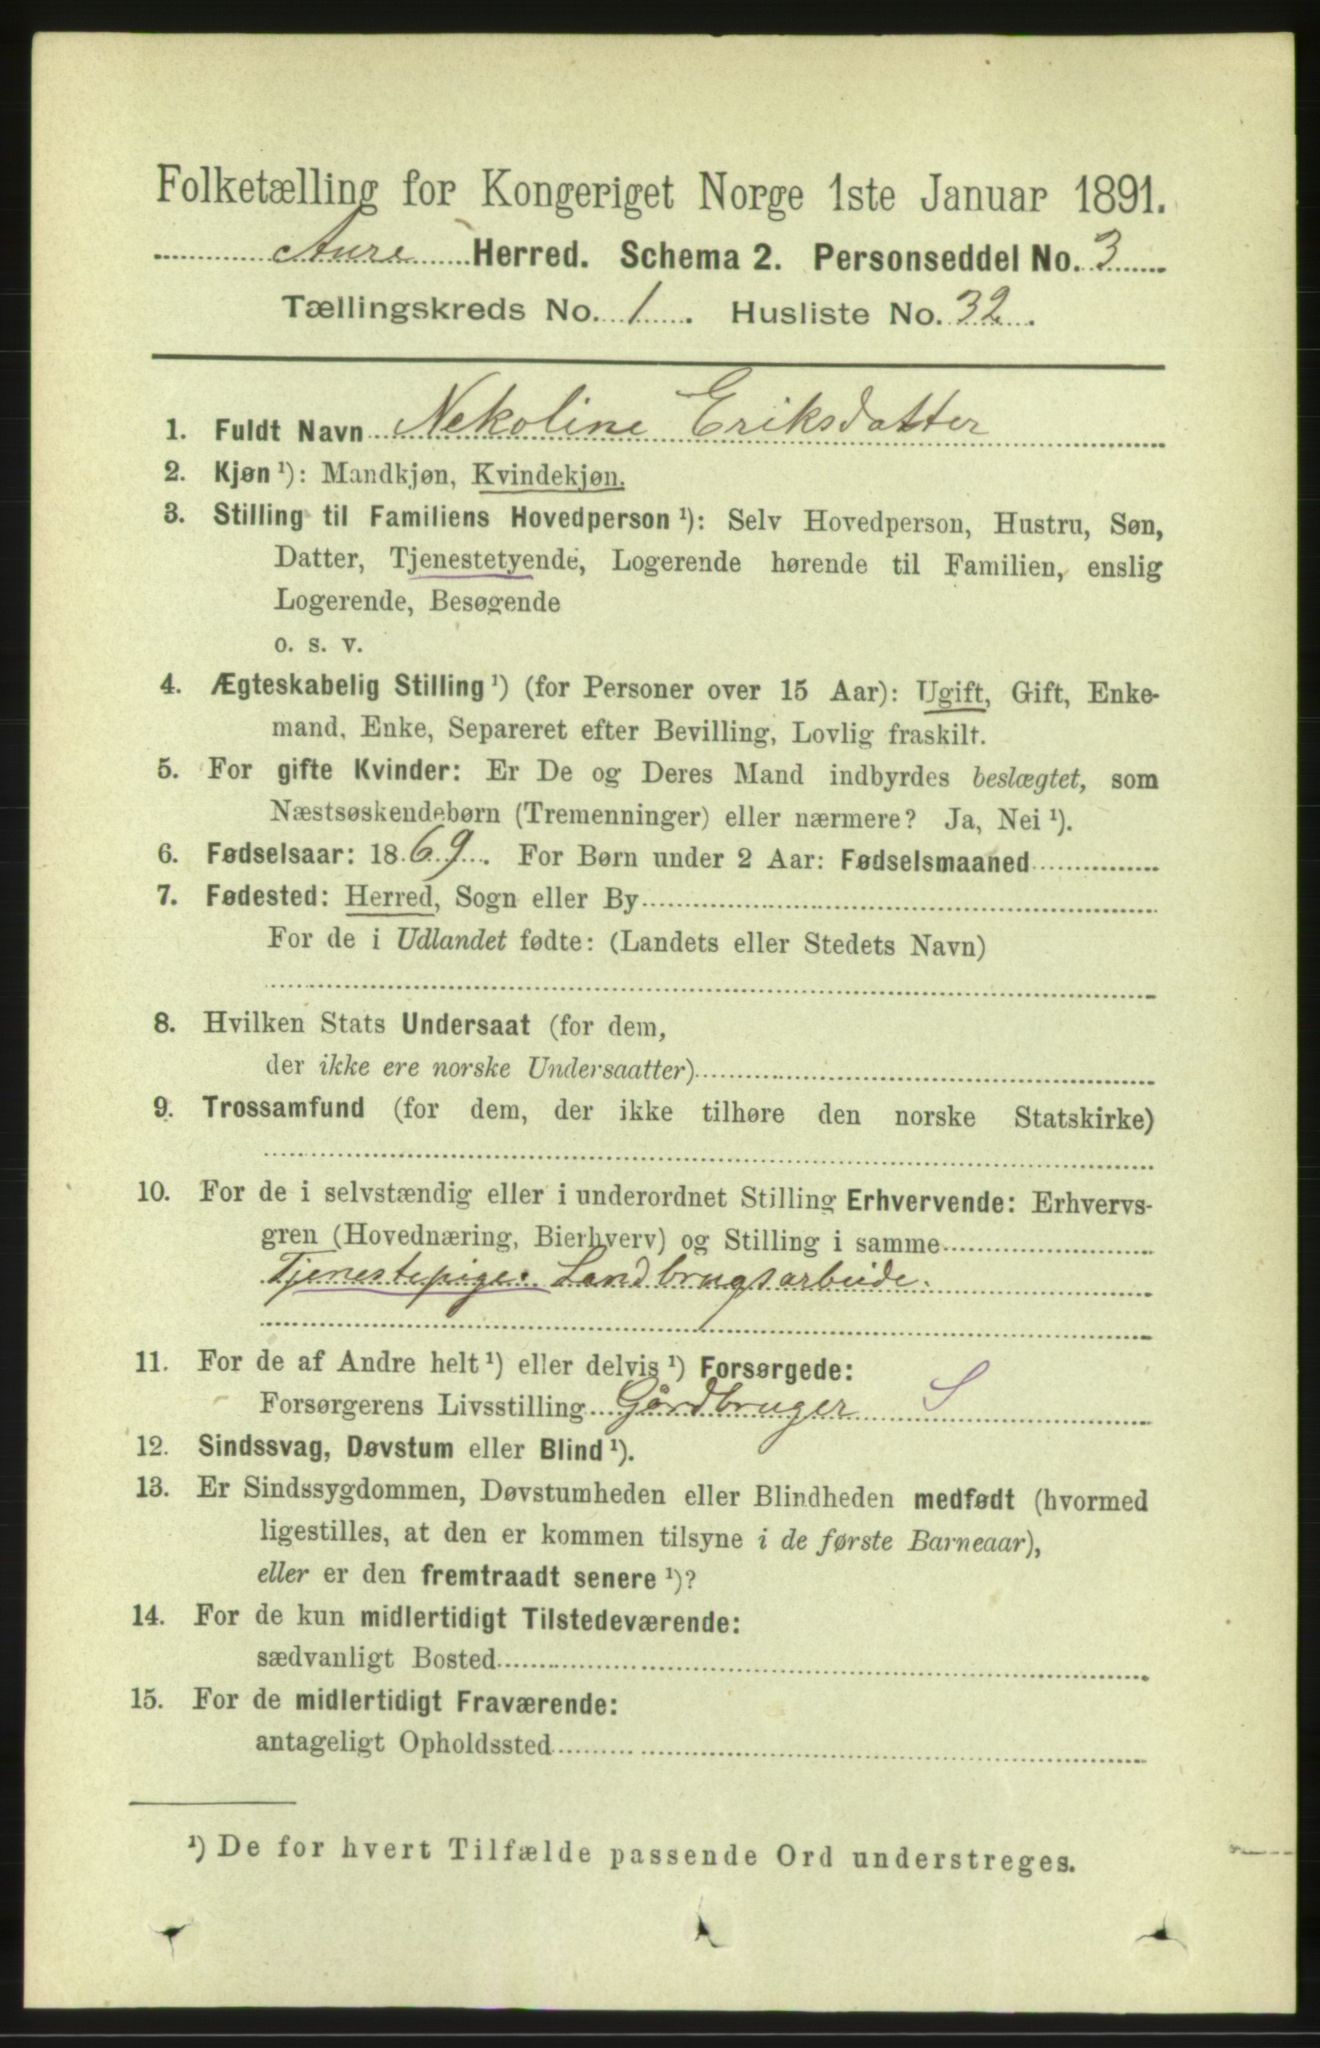 Folketælling for Kongeriget Norge 1ste Januar 1891.
Aure Herred. Schema 2. Personseddel No. 3
Tællingskreds No. 1. Husliste No. 32.
1. Fuldt Navn Nekoline Eriksdatter
2. Kjøn ¹): Mandkjøn, Kvindekjøn.
3. Stilling til Familiens Hovedperson ¹): Selv Hovedperson, Hustru, Søn,
Datter, Tjenestetyende, Logerende hørende til Familien, enslig
Logerende, Besøgende
o. s. v.
4. Ægteskabelig Stilling ¹) (for Personer over 15 Aar): Ugift, Gift, Enke-
mand, Enke, Separeret efter Bevilling, Lovlig fraskilt.
5. For gifte Kvinder: Er De og Deres Mand indbyrdes beslægtet, som
Næstsøskendebørn (Tremenninger) eller nærmere? Ja, Nei ¹).
6. Fødselsaar: 1869. For Børn under 2 Aar: Fødselsmaaned
7. Fødested: Herred, Sogn eller By
For de i Udlandet fødte: (Landets eller Stedets Navn)
8. Hvilken Stats Undersaat (for dem,
der ikke ere norske Undersaatter)
9. Trossamfund (for dem, der ikke tilhøre den norske Statskirke)
10. For de i selvstændig eller i underordnet Stilling Erhvervende: Erhvervs-
gren (Hovednæring, Bierhverv) og Stilling i samme
Tjenestepige: Landbrugsarbeide.
11. For de af Andre helt ¹) eller delvis ¹) Forsørgede:
Forsørgerens Livsstilling Gårdbruger S
12. Sindssvag, Døvstum eller Blind ¹).
13. Er Sindssygdommen, Døvstumheden eller Blindheden medfødt (hvormed
ligestilles, at den er kommen tilsyne i de første Barneaar),
eller er den fremtraadt senere ¹)?
14. For de kun midlertidigt Tilstedeværende:
sædvanligt Bosted
15. For de midlertidigt Fraværende:
antageligt Opholdssted
¹) De for hvert Tilfælde passende Ord understreges.